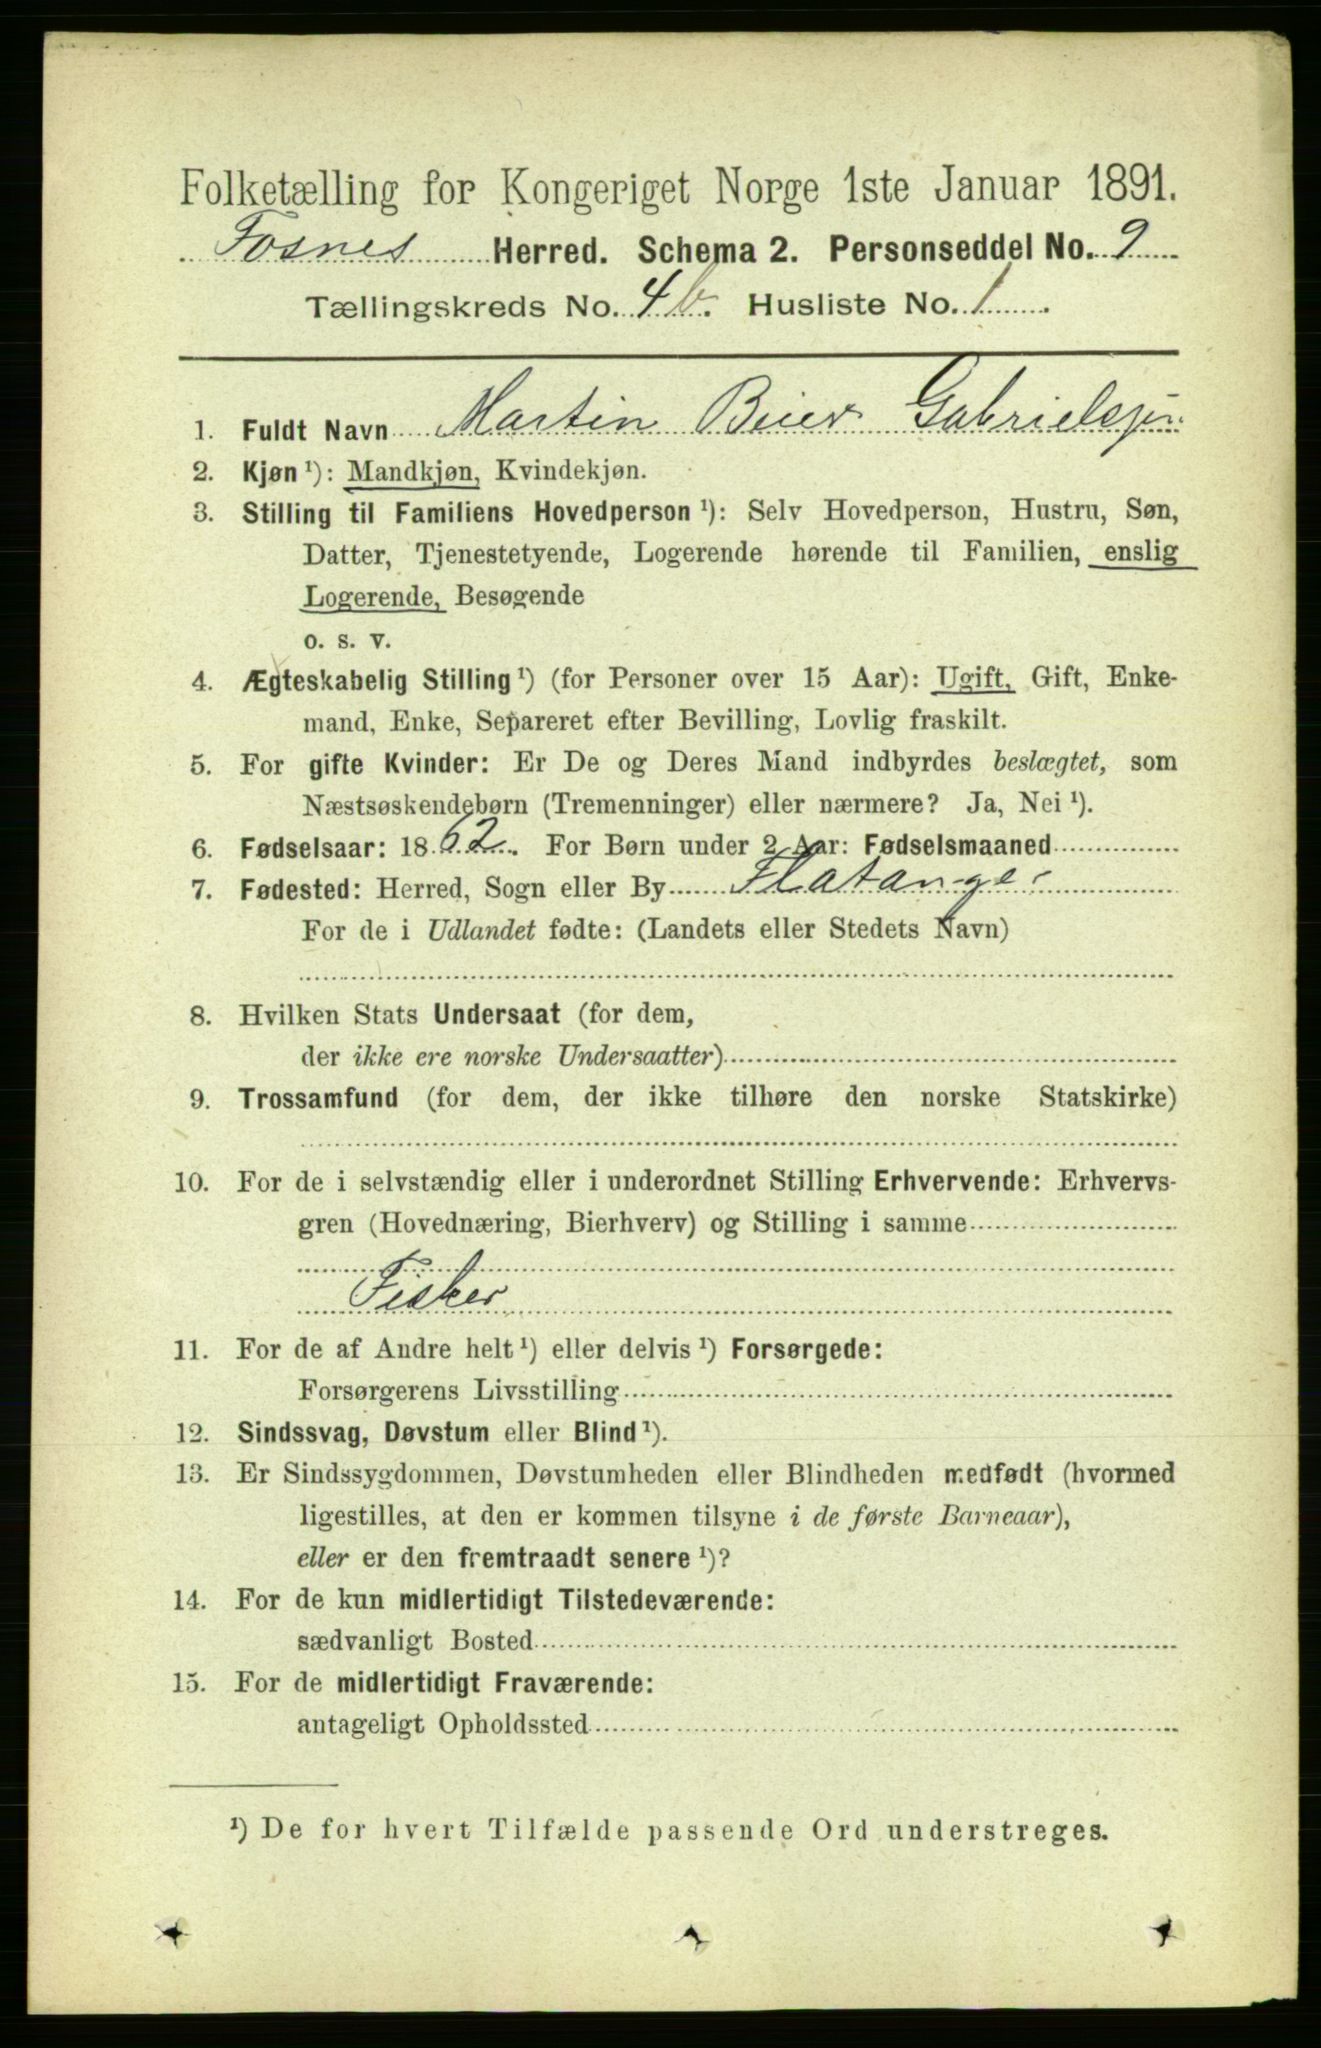 Folketælling for Kongeriget Norge 1ste Januar 1891.
Fosnes Herred. Schema 2. Personseddel No. 9
Tællingskreds No. 4b. Husliste No. 1
1. Fuldt Navn Martin Beier Gabrielsen
2. Kjøn ¹): Mandkjøn, Kvindekjøn.
3. Stilling til Familiens Hovedperson ¹): Selv Hovedperson, Hustru, Søn,
Datter, Tjenestetyende, Logerende hørende til Familien, enslig
Logerende, Besøgende
o. s. v.
4. Ægteskabelig Stilling ¹) (for Personer over 15 Aar): Ugift, Gift, Enke-
mand, Enke, Separeret efter Bevilling, Lovlig fraskilt.
5. For gifte Kvinder: Er De og Deres Mand indbyrdes beslægtet, som
Næstsøskendebørn (Tremenninger) eller nærmere? Ja, Nei ¹).
6. Fødselsaar: 1862. For Børn under 2 Aar: Fødselsmaaned
7. Fødested: Herred, Sogn eller By Flatanger
For de i Udlandet fødte: (Landets eller Stedets Navn)
8. Hvilken Stats Undersaat (for dem,
der ikke ere norske Undersaatter)
9. Trossamfund (for dem, der ikke tilhøre den norske Statskirke)
10. For de i selvstændig eller i underordnet Stilling Erhvervende: Erhvervs-
gren (Hovednæring, Bierhverv) og Stilling i samme
Fisker
11. For de af Andre helt ¹) eller delvis ¹) Forsørgede:
Forsørgerens Livsstilling
12. Sindssvag, Døvstum eller Blind ¹).
13. Er Sindssygdommen, Døvstumheden eller Blindheden medfødt (hvormed
ligestilles, at den er kommen tilsyne i de første Barneaar),
eller er den fremtraadt senere ¹)?
14. For de kun midlertidigt Tilstedeværende:
sædvanligt Bosted
15. For de midlertidigt Fraværende:
antageligt Opholdssted
¹) De for hvert Tilfælde passende Ord understreges.